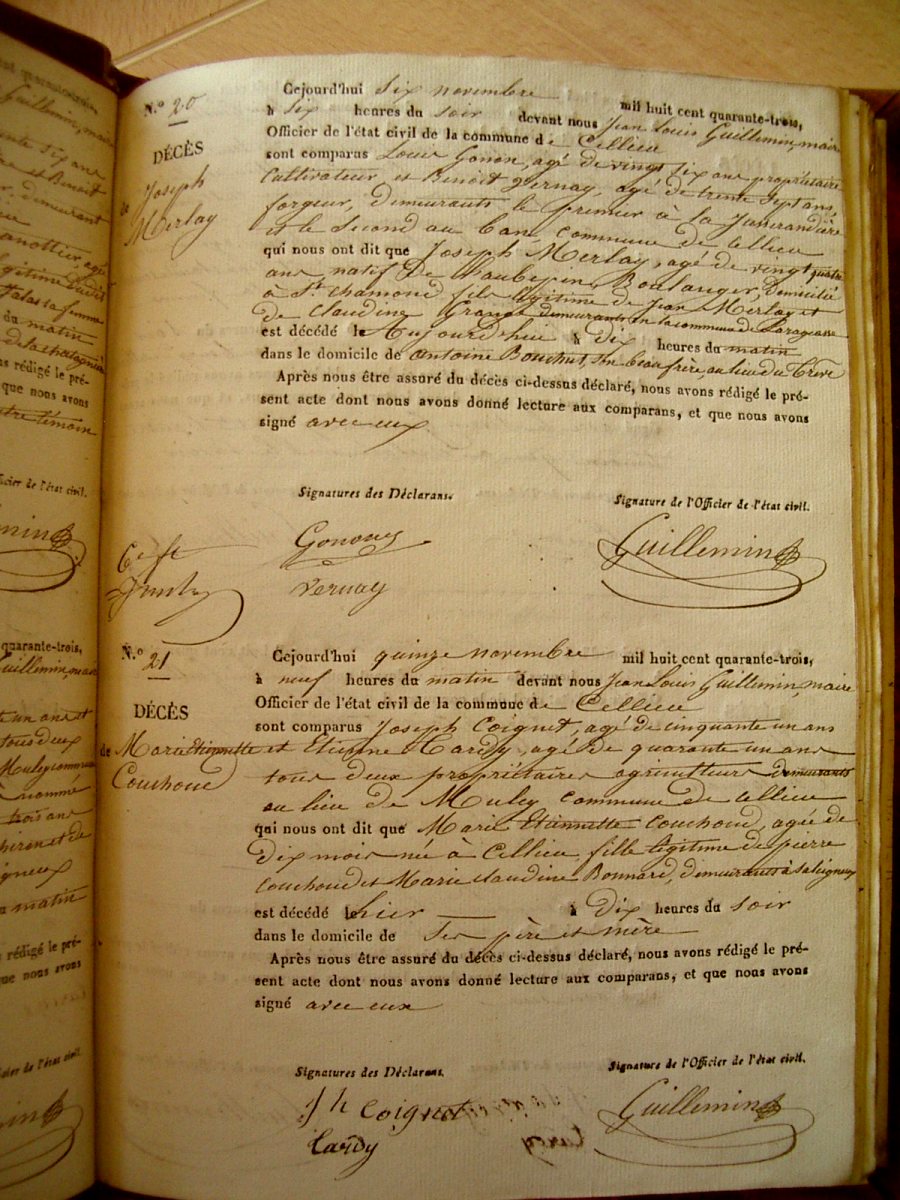 N.º 20
DÉCÈS
de Joseph
Merlay
Cejourd'hui six novembre mil huit cent quarante-trois,
à six heures du soir devant nous Jean Louis Guillemin, maire
Officier de l'état civil de la commune de Cellieu
sont comparus Louis Gonon, agé de vingt six ans propriétaire
Cultivateur, et Benoit Vernay, agé de trente sept ans,
forgeur, demeurants le premier à la Jusserandière
et le Second au Ban, commune de Cellieu
qui nous ont dit que Joseph Merlay, agé de vingt quatre
ans natif de Boulanger, domicilié
à St. Chamond fils légitime de Jean Merlay et
de Claudine Grange demeurants en la commune de Larajasse
est décédé le aujourdhui à dix heures du matin
dans le domicile de Antoine Bouchut, son beau frère, au lieu du Trève
Après nous être assuré du décès ci-dessus déclaré, nous avons rédigé le pré-
sent acte dont nous avons donné lecture aux comparans, et que nous avons
signé avec eux
Signatures des Déclarans.
Signature de l'Officier de l'état civil.
Gonon
Vernay
Guillemin
N.º 21
DÉCÈS
de Marie Etiennette
Couchoud
Cejourd'hui quinze novembre mil huit cent quarante-trois,
à neuf heures du matin devant nous Jean Louis Guillemin, maire
Officier de l'état civil de la commune de Cellieu
sont comparus Joseph Coignet, agé de cinquante un ans
et Etienne Tardy, agé de quarante un ans
tous deux propriétaires agriculteurs demeurants
au lieu de Muley commune de Cellieu
qui nous ont dit que Marie Etiennette Couchoud, agée de
dix mois née à Cellieu, fille légitime de pierre
Couchoud et Marie Claudine Bonnard, demeurants à Saleigneux
est décédé le hier à dix heures du soir
dans le domicile de ses père et mère
Après nous être assuré du décès ci-dessus déclaré, nous avons rédigé le pré-
sent acte dont nous avons donné lecture aux comparans, et que nous avons
signé avec eux
Signatures des Déclarans.
Signature de l'Officier de l'état civil.
Jh Coignet
tardy
Guillemin